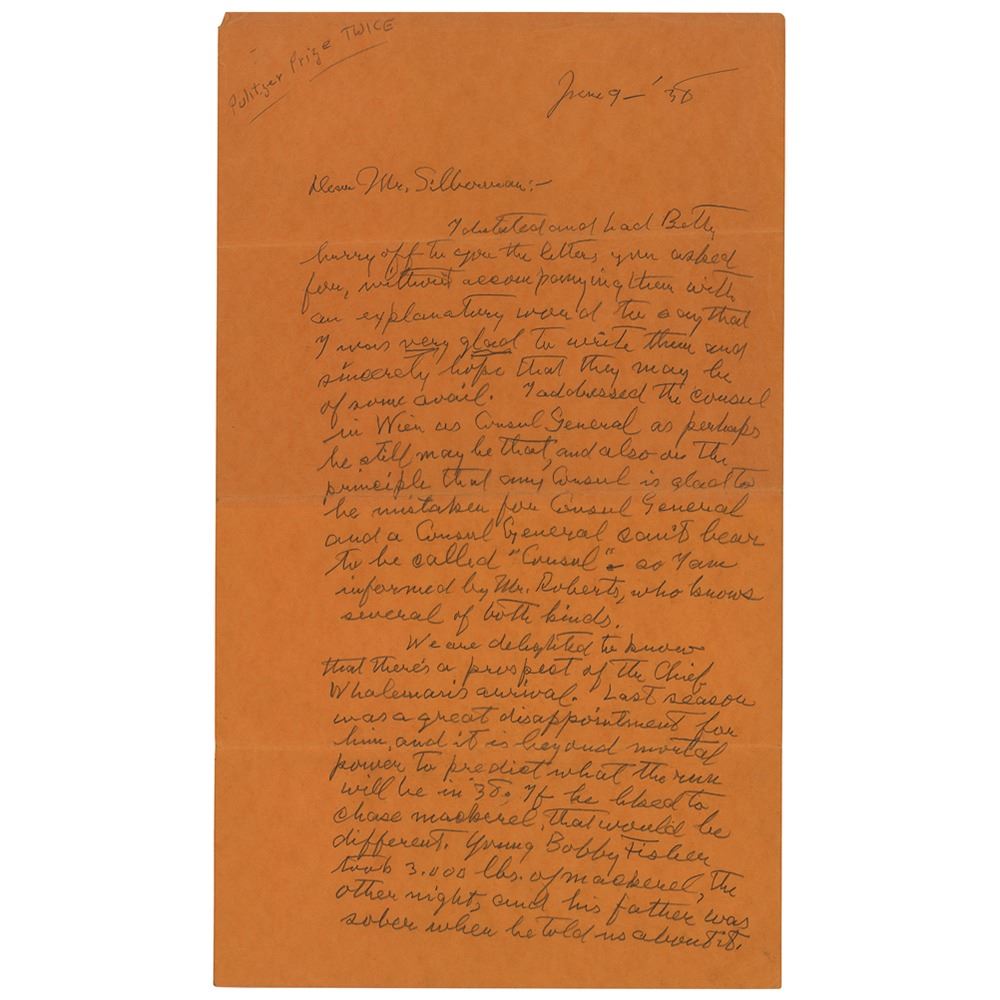 Pulitzer Prize TWICE
June 9 – '38
Dear Mr. Silberman:–
I dictated and had Betty
hurry off to you the letters you asked
for, without accompanying them with
an explanatory word to say that
I was very glad to write them and
sincerely hope that they may be
of some avail. I addressed the consul
in Wien as Consul General as perhaps
he still may be that, and also on the
principle that any Consul is glad to
be mistaken for Consul General
and a Consul General can't bear
to be called "Consul" – so I am
informed by Mr. Roberts, who knows
several of both kinds.
We are delighted to know
that there's a prospect of the Chief
Whaleman's arrival. Last season
was a great disappointment for
him, and it is beyond mortal
power to predict what the run
will be in '38. If he liked to
chase mackerel, that would be
different. Young Bobby Fisher
took 3.000 lbs. of mackerel, the
other night, and his father was
sober when he told us about it.